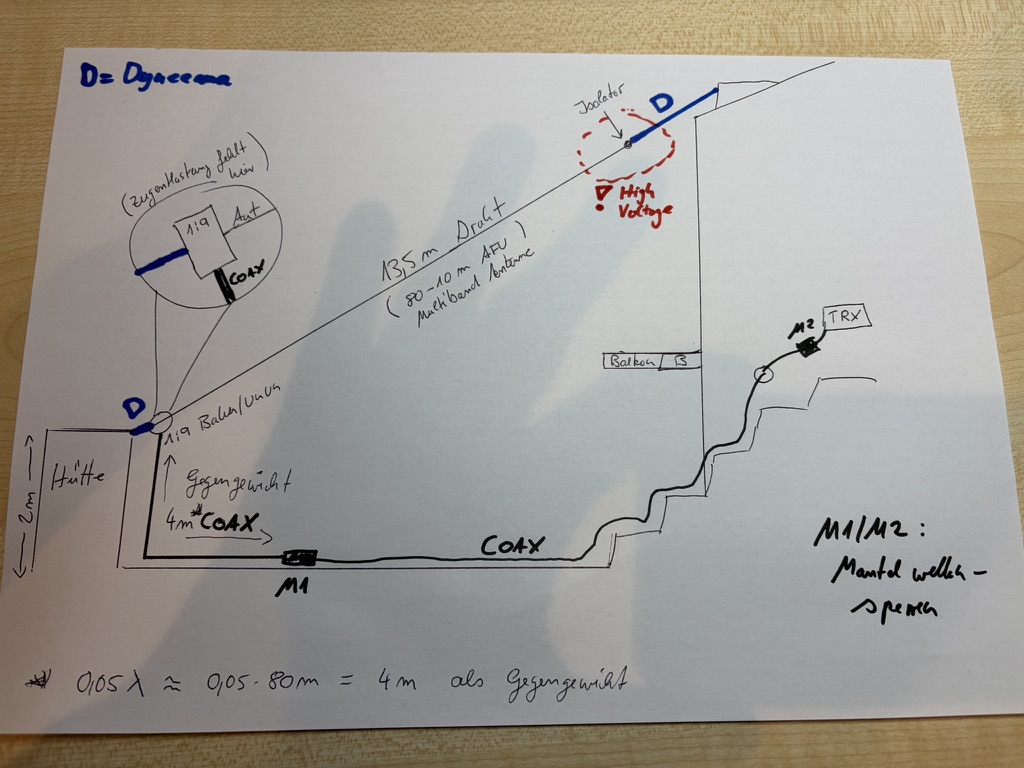 D = Dyneema
(Zugentlastung fehlt
hier)
1:9
Ant
COAX
Isolator
D
High
Voltage
13,5 m Draht
(80-10 m AFU
Multiband Antenne)
TRX
M2
Balkon
B
D
1:9 Balun/Unun
Hütte
2m
Gegengewicht
4m* COAX
COAX
M1
M1/M2:
Mantelwellen-
sperren
* 0,05 λ ≈ 0,05 · 80m = 4m als Gegengewicht